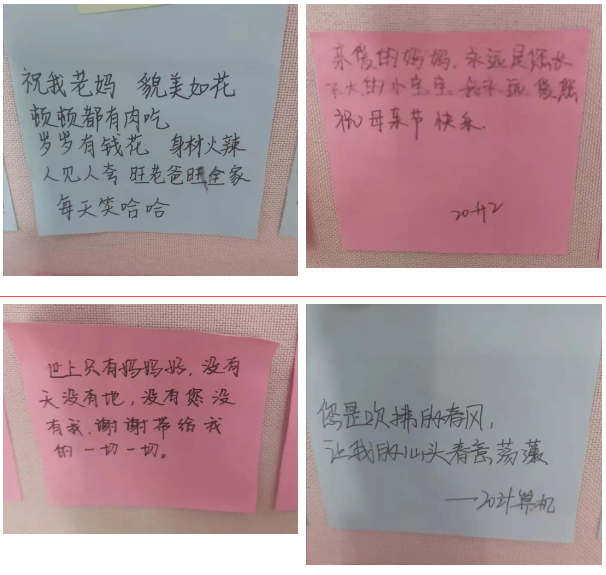 祝我老妈 貌美如花
顿顿都有肉吃
岁岁有钱花 身材火辣
人见人夸 旺老爸旺全家
每天笑哈哈
亲爱的妈妈,永远是您长
不大的小宝宝,我永远爱您
祝母亲节快乐.
世上只有妈妈好,没有
天没有地,没有您没
有我、谢谢带给我
的一切一切。
您是吹拂的春风,
让我的心头春意荡漾
——2021